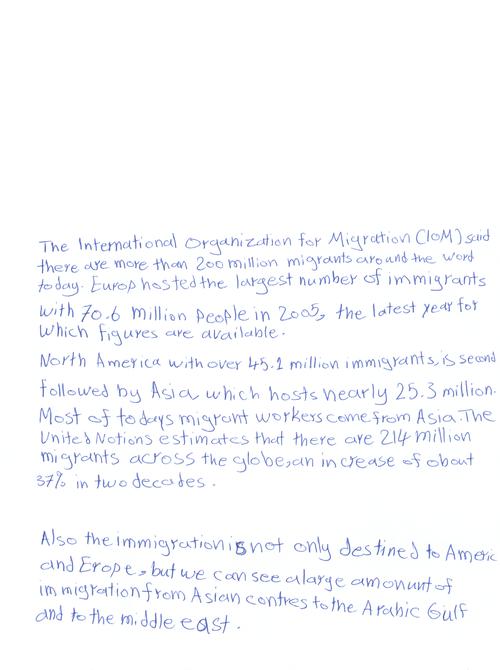 The International Organization for Migration (IOM) said
there are more than 200 million migrants around the word
today. Europ hosted the largest number of immigrants
with 70.6 million people in 2005, the latest year for
which figures are available.
North America with over 45.1 million immigrants, is second
followed by Asia which hosts nearly 25.3 million.
Most of todays migrant workers come from Asia. The
United Nations estimates that there are 214 million
migrants across the globe, an increase of about
37% in two decades.
Also the immigration is not only destined to Americ
and Erope, but we can see a large amonunt of
immigration from Asian contres to the Arabic Gulf
and to the middle east.